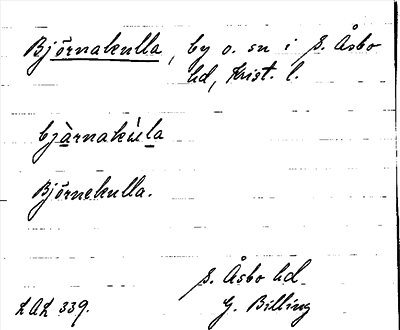 Björnakulla, by o. sn i S. Åsbo
hd, Krist. l.
bjàrnakùla
Björnekulla.
S. Åsbo hd.
LAL 339.
G. Billing